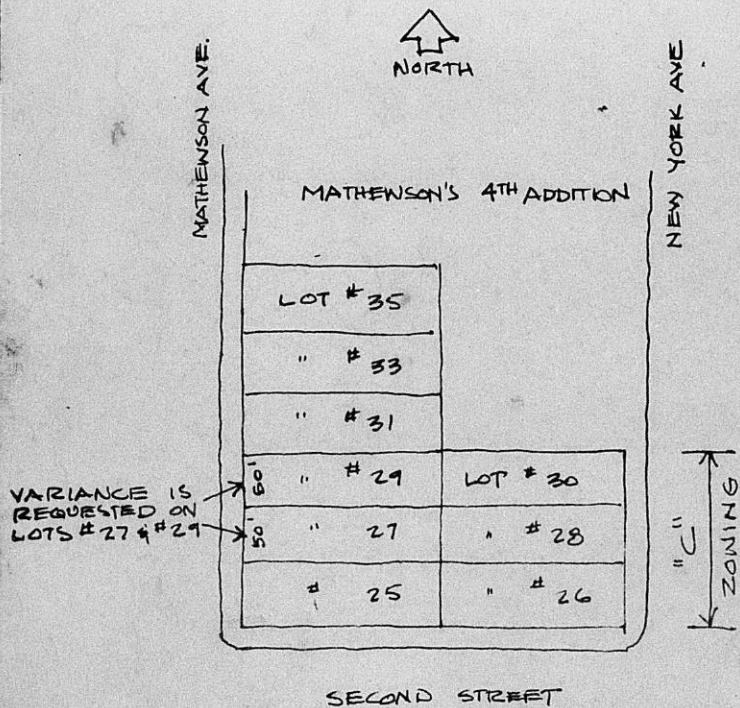 NORTH
MATHEWSON AVE.
NEW YORK AVE.
MATHEWSON'S 4TH ADDITION
LOT # 35
" # 33
" # 31
50' " # 29
LOT # 30
50' " 27
" # 28
# 25
" # 26
VARIANCE IS
REQUESTED ON
LOTS # 27 & # 29
"C"
ZONING
SECOND STREET